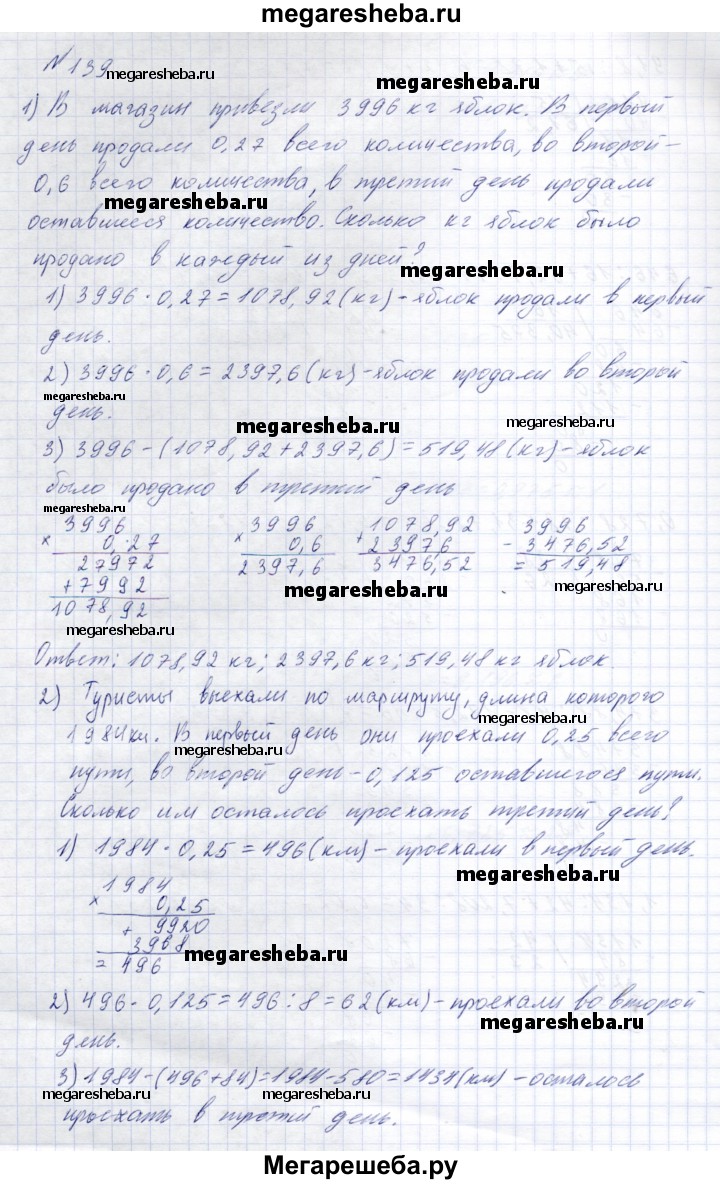 megaresheba.ru
№139
megaresheba.ru
megaresheba.ru
1) В магазин привезли 3996 кг яблок. В первый
день продали 0,27 всего количества, во второй -
0,6 всего количества, в третий день продали
megaresheba.ru
оставшееся количество. Сколько кг яблок было
продано в каждый из дней?
megaresheba.ru
1) 3996 · 0,27 = 1078,92 (кг) - яблок продали в первый
день.
2) 3996 · 0,6 = 2397,6 (кг) - яблок продали во второй
megaresheba.ru
день.
megaresheba.ru
megaresheba.ru
3) 3996 - (1078,92 + 2397,6) = 519,48 (кг) - яблок
было продано в третий день
3996 3996 1078,92 3996
× 0,27 × 0,6 + 2397,6 - 3476,52
27972 2397,6 3476,52 = 519,48
+7992
megaresheba.ru
megaresheba.ru
1078,92
megaresheba.ru
Ответ: 1078,92 кг; 2397,6 кг; 519,48 кг яблок.
2) Туристы выехали по маршруту, длина которого
megaresheba.ru
1984 км. В первый день они проехали 0,25 всего
megaresheba.ru
пути, во второй день - 0,125 оставшегося пути.
Сколько им осталось проехать третий день?
1) 1984 · 0,25 = 496 (км) - проехали в первый день.
megaresheba.ru
1984
× 0,25
+ 9920
3968
megaresheba.ru
= 496
2) 496 · 0,125 = 496 : 8 = 62 (км) - проехали во второй
megaresheba.ru
день.
3) 1984 - (496 + 84) = 1984 - 580 = 1434 (км) - осталось
megaresheba.ru
megaresheba.ru
проехать в третий день.
Мегарешеба.ру